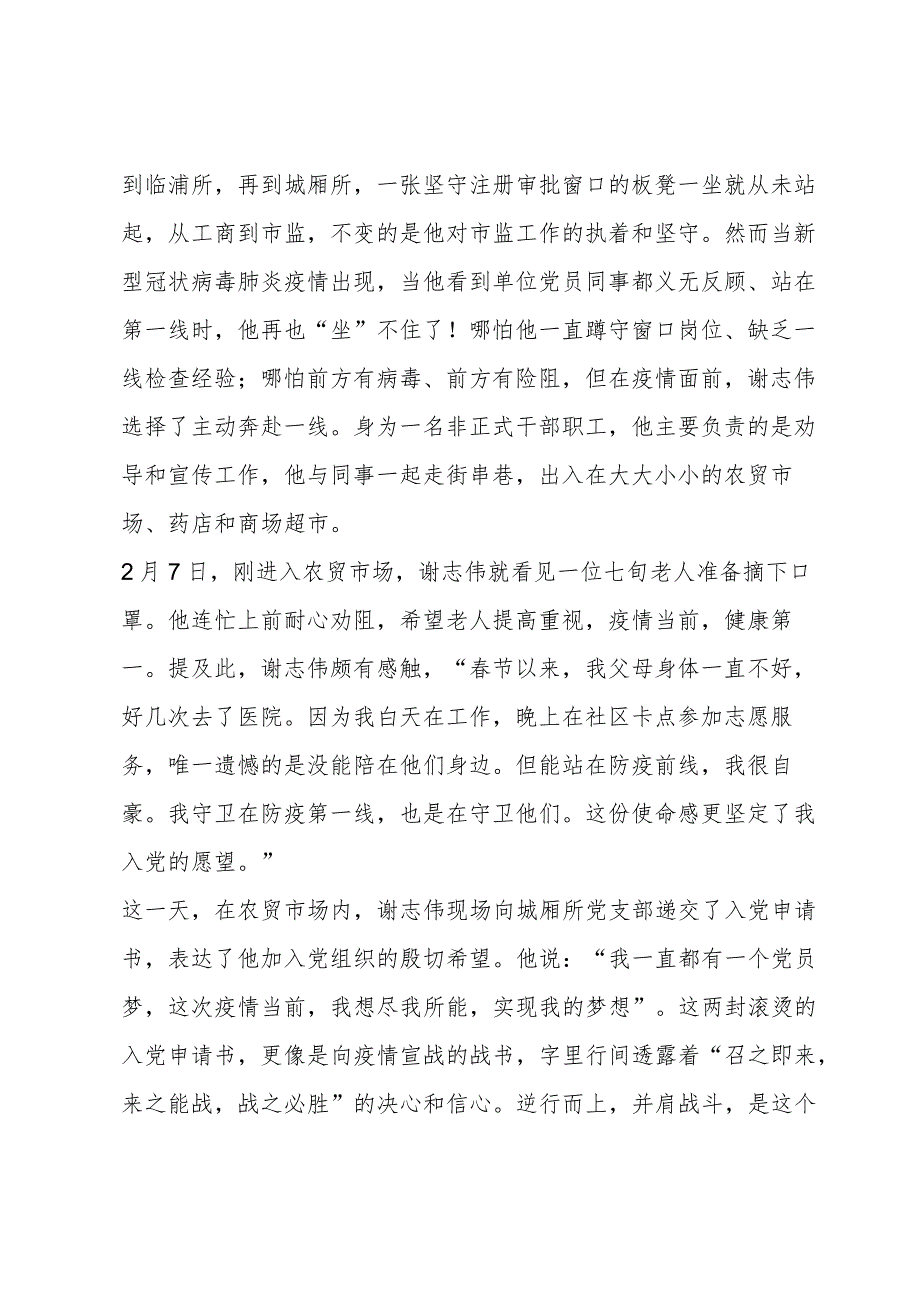 到临浦所，再到城厢所，一张坚守注册审批窗口的板凳一坐就从未站
起，从工商到市监，不变的是他对市监工作的执着和坚守。然而当新
型冠状病毒肺炎疫情出现，当他看到单位党员同事都义无反顾、站在
第一线时，他再也“坐”不住了！哪怕他一直蹲守窗口岗位、缺乏一
线检查经验；哪怕前方有病毒、前方有险阻，但在疫情面前，谢志伟
选择了主动奔赴一线。身为一名非正式干部职工，他主要负责的是劝
导和宣传工作，他与同事一起走街串巷，出入在大大小小的农贸市
场、药店和商场超市。
2 月 7 日，刚进入农贸市场，谢志伟就看见一位七旬老人准备摘下口
罩。他连忙上前耐心劝阻，希望老人提高重视，疫情当前，健康第
一。提及此，谢志伟颇有感触，“春节以来，我父母身体一直不好，
好几次去了医院。因为我白天在工作，晚上在社区卡点参加志愿服
务，唯一遗憾的是没能陪在他们身边。但能站在防疫前线，我很自
豪。我守卫在防疫第一线，也是在守卫他们。这份使命感更坚定了我
入党的愿望。”
这一天，在农贸市场内，谢志伟现场向城厢所党支部递交了入党申请
书，表达了他加入党组织的殷切希望。他说：“我一直都有一个党员
梦，这次疫情当前，我想尽我所能，实现我的梦想”。这两封滚烫的
入党申请书，更像是向疫情宣战的战书，字里行间透露着“召之即来，
来之能战，战之必胜”的决心和信心。逆行而上，并肩战斗，是这个